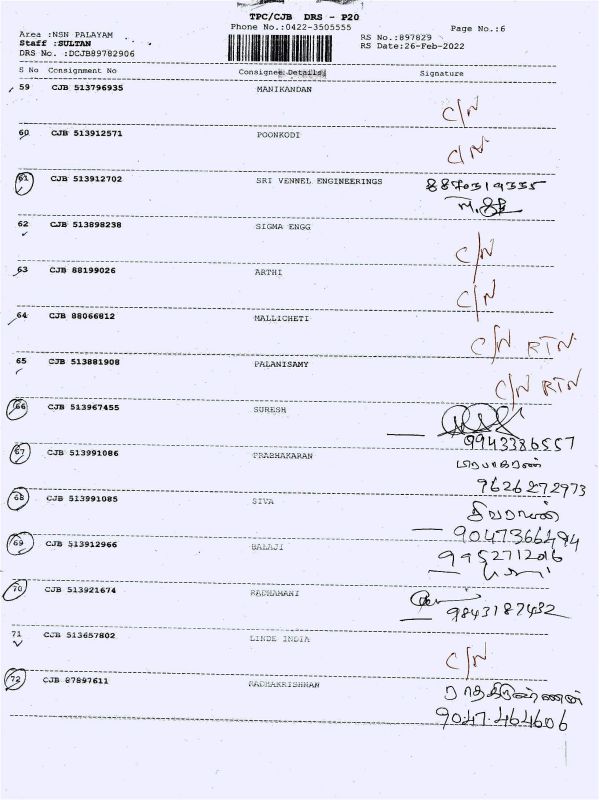 TPC/CJB DRS - P20
Phone No.:0422-3505555
Page No.:6
Area :NSN PALAYAM
Staff :SULTAN
DRS No. :DCJB89782906
RS No.:897829
RS Date:26-Feb-2022
S No Consignment No Consignee Details Signature
59 CJB 513796935 MANIKANDAN C/N
60 CJB 513912571 POONKODI C/N
61 CJB 513912702 SRI VENNEL ENGINEERINGS 8870319355
62 CJB 513898238 SIGMA ENGG C/N
63 CJB 88199026 ARTHI C/N
64 CJB 88066812 MALLICHETI C/N RTN
65 CJB 513881908 PALANISAMY C/N RTN
66 CJB 513967455 SURESH
9943386557
67 CJB 513991086 PRABHAKARAN பிரபாகரன்
9626272973
68 CJB 513991085 SIVA
9047366494
69 CJB 513912966 BALAJI 9952712016
70 CJB 513921674 RADHAMANI
9843187432
71 CJB 513657802 LINDE INDIA C/N
72 CJB 87897611 RADHAKRISHNAN
9047464606